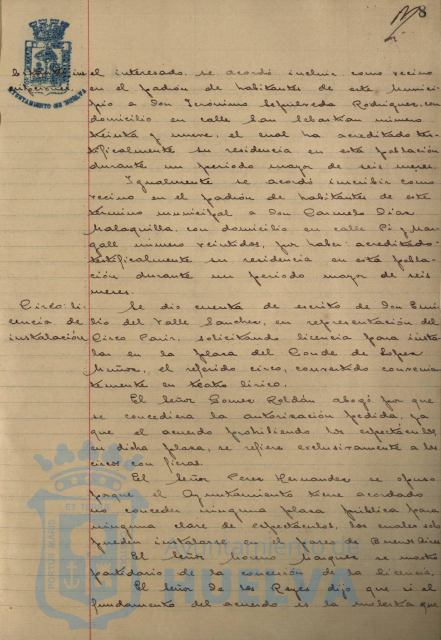 8
AYUNTAMIENTO DE HUELVA
el interesado, se acordó incluir como vecino
en el padrón de habitantes de este Munici-
pio a Don Jeronimo Sepulveda Rodriguez, con
domicilio en calle San Sebastian número
treinta y nueve, el cual ha acreditado tes-
tificalmente su residencia en esta población
durante un periodo mayor de seis meses.
Igualmente se acordó inscribir como
vecino en el padrón de habitantes de este
término municipal a Don Carmelo Diaz
Malaquilla, con domicilio en calle Pi y Mar-
gall número veintidos, por haber acreditado
testificalmente su residencia en esta pobla-
ción durante un periodo mayor de seis
meses.
Circo: li-
cencia de
instalación
Se dió cuenta de escrito de Don Emi-
lio del Valle Sanchez, en representación del
Circo Paris, solicitando licencia para insta-
lar en la plaza del Conde de Lopez
Muñoz, el referido circo, convertido convenien-
temente en teatro lirico.
El Señor Gomez Roldán abogó por que
se concediera la autorización pedida, ya
que el acuerdo prohibiendo los espectáculos
en dicha plaza, se refiere exclusivamente a los
circos con fieras.
El Señor Perez Hernandez se opuso
porque el Ayuntamiento tiene acordado
no conceder ninguna plaza pública para
ninguna clase de espectáculos, los cuales solo
pueden instalarse en el paseo de Buenos Aires
El Señor Moreno Marquez se mostró
partidario de la concesión de la licencia.
El Señor de los Reyes dijo que si el
fundamento del acuerdo es la molestia que
PORTUS MARIS
HUELVA